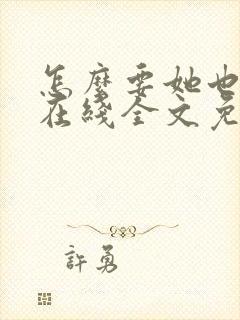 怎麼要她也
在綫全文免
許勇